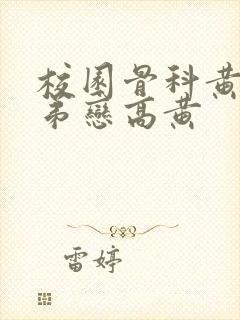 校园骨科黄
弟戀高黄
雷婷